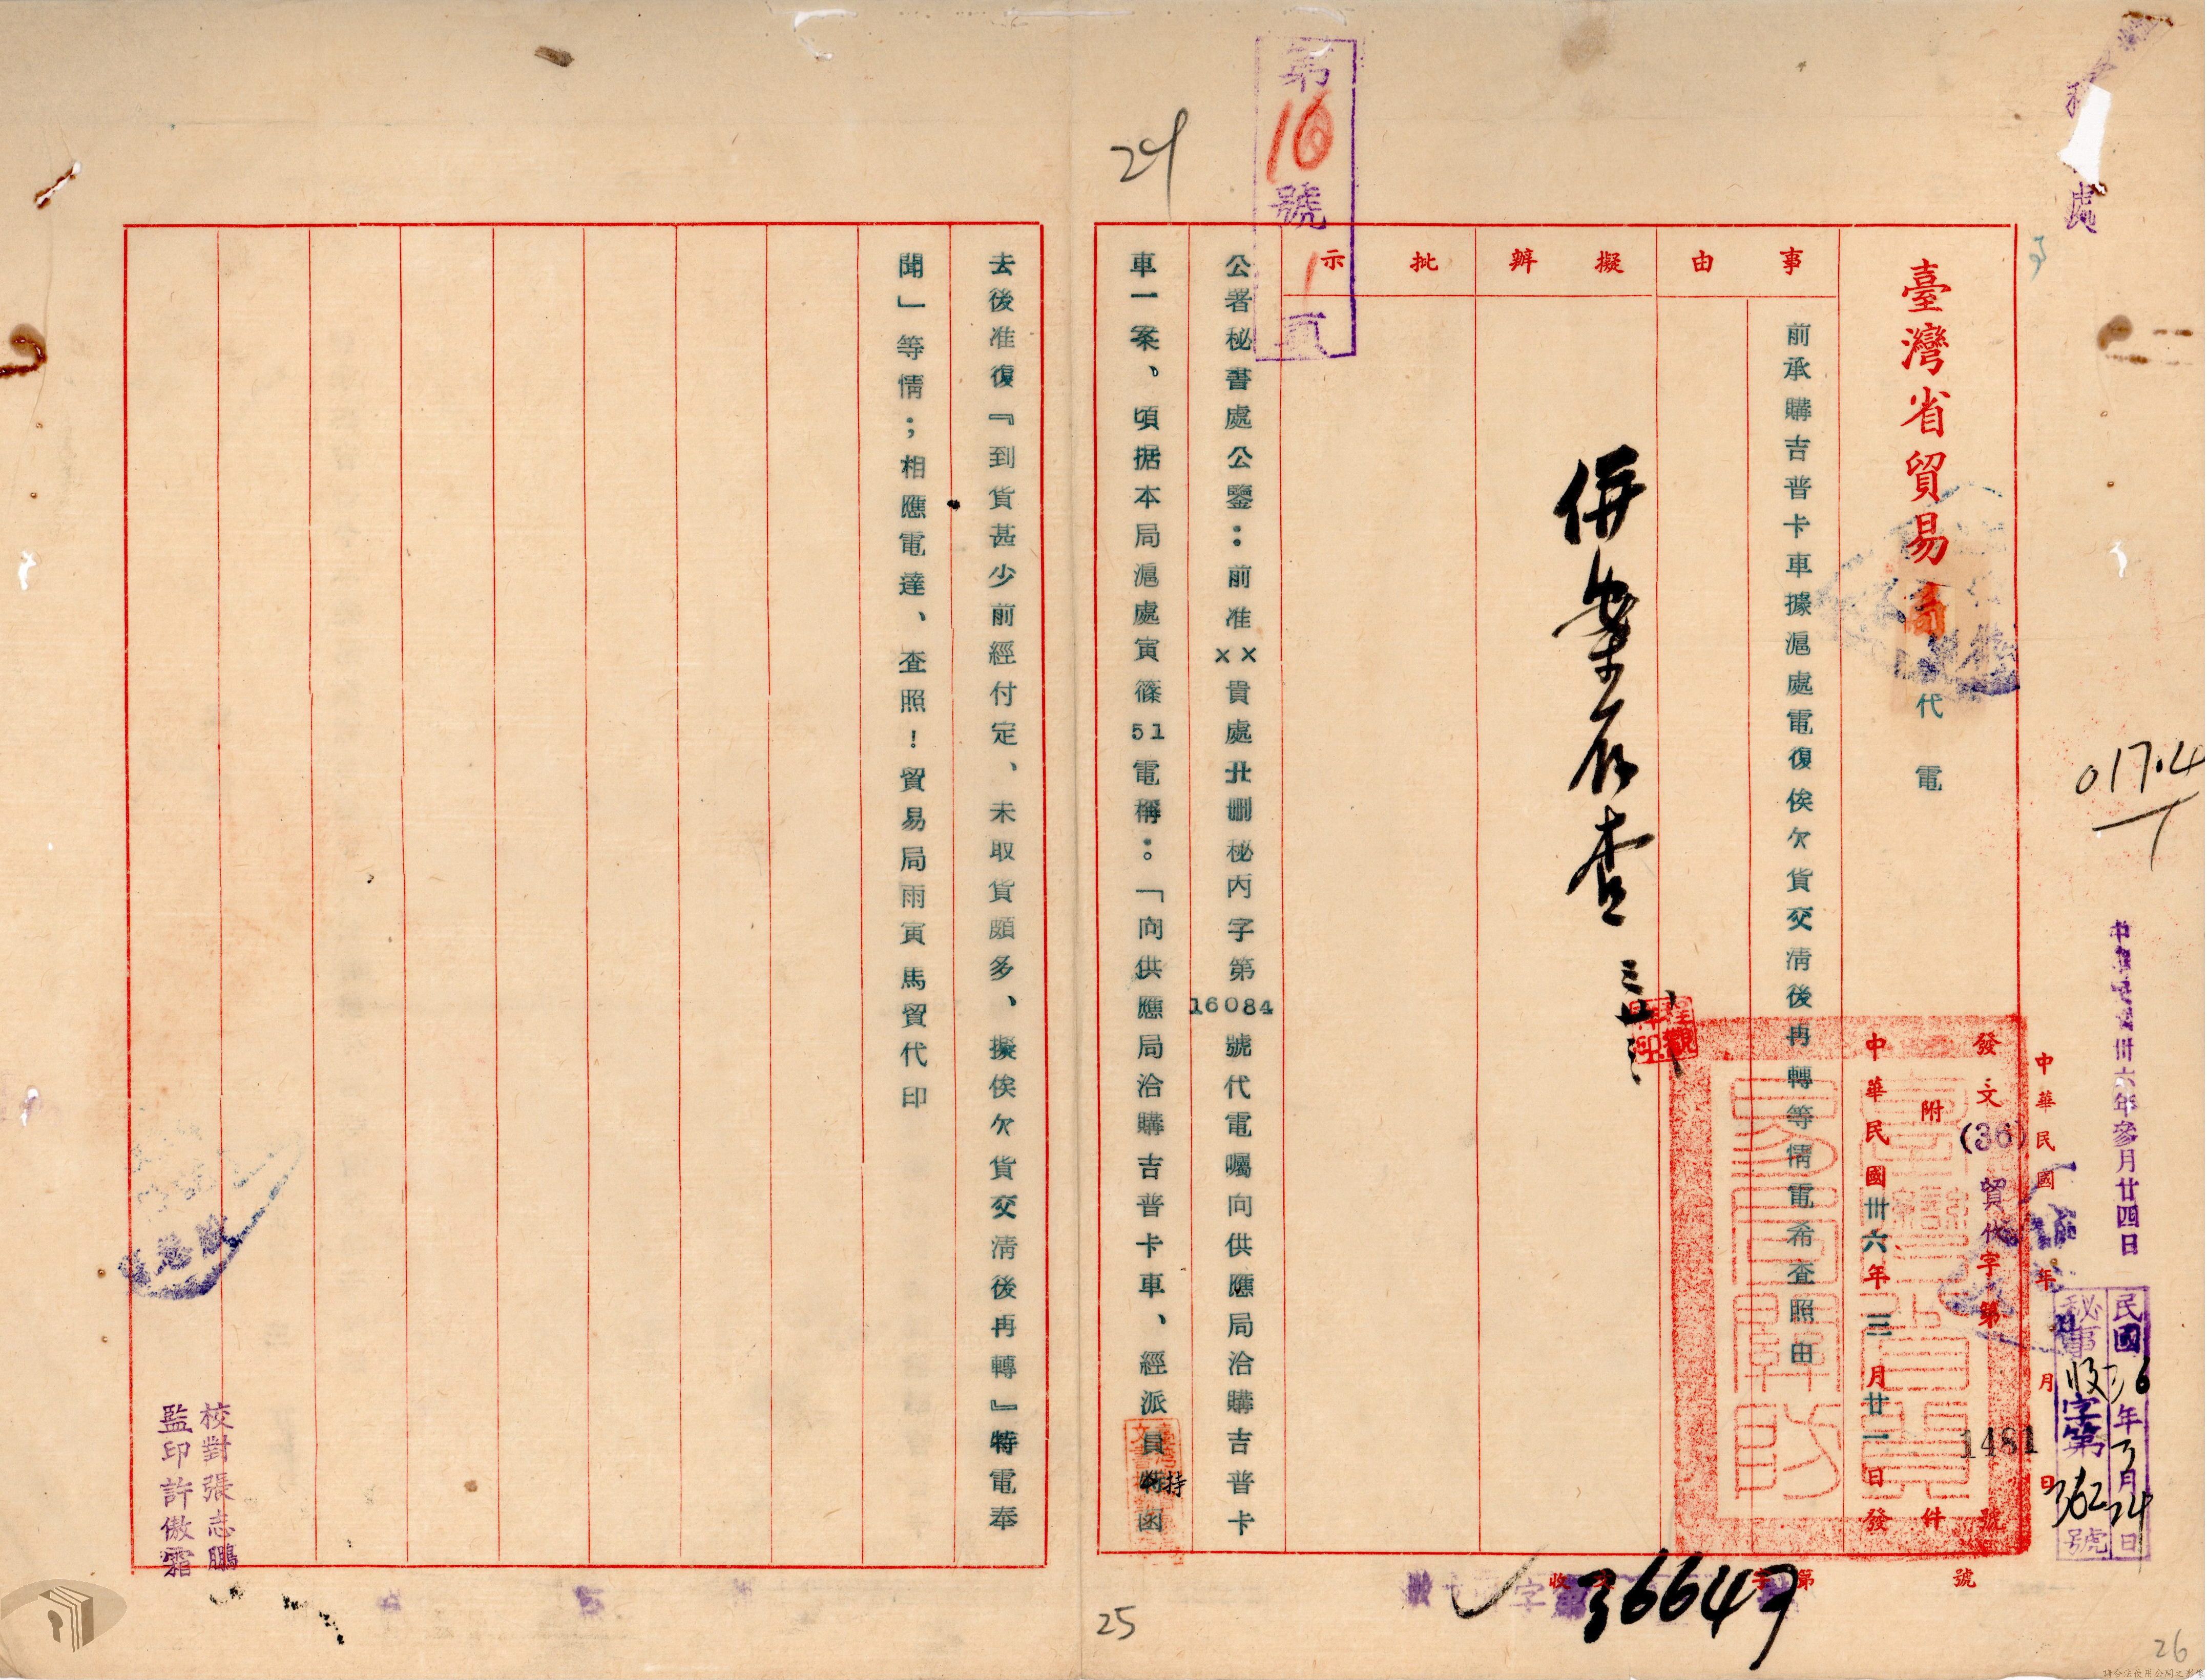 第16號1頁
24
處
臺灣省貿易局代電
事由
擬辦
批示
前承購吉普卡車據滬處電復俟欠貨交清後再轉等情電希查照由
發文(36)貿代字第1481號
附件
中華民國卅六年三月廿一日發
中華民國 年 月 日
中華民國卅六年參月廿四日
017.4
民國36年3月24日
秘事收字第362號
併案存查
公署秘書處公鑒：前准××貴處丑刪秘丙字第16084號代電囑向供應局洽購吉普卡
車一案、頃据本局滬處寅篠51電稱：。「向供應局洽購吉普卡車、經派員持函
去後准復『到貨甚少前經付定、未取貨頗多、擬俟欠貨交清後再轉』特電奉
聞」等情；相應電達、查照！貿易局雨寅馬貿代印
校對張志鵬
監印許傲霜
收 字第 號
36647
25
26
請合法使用公開之影像